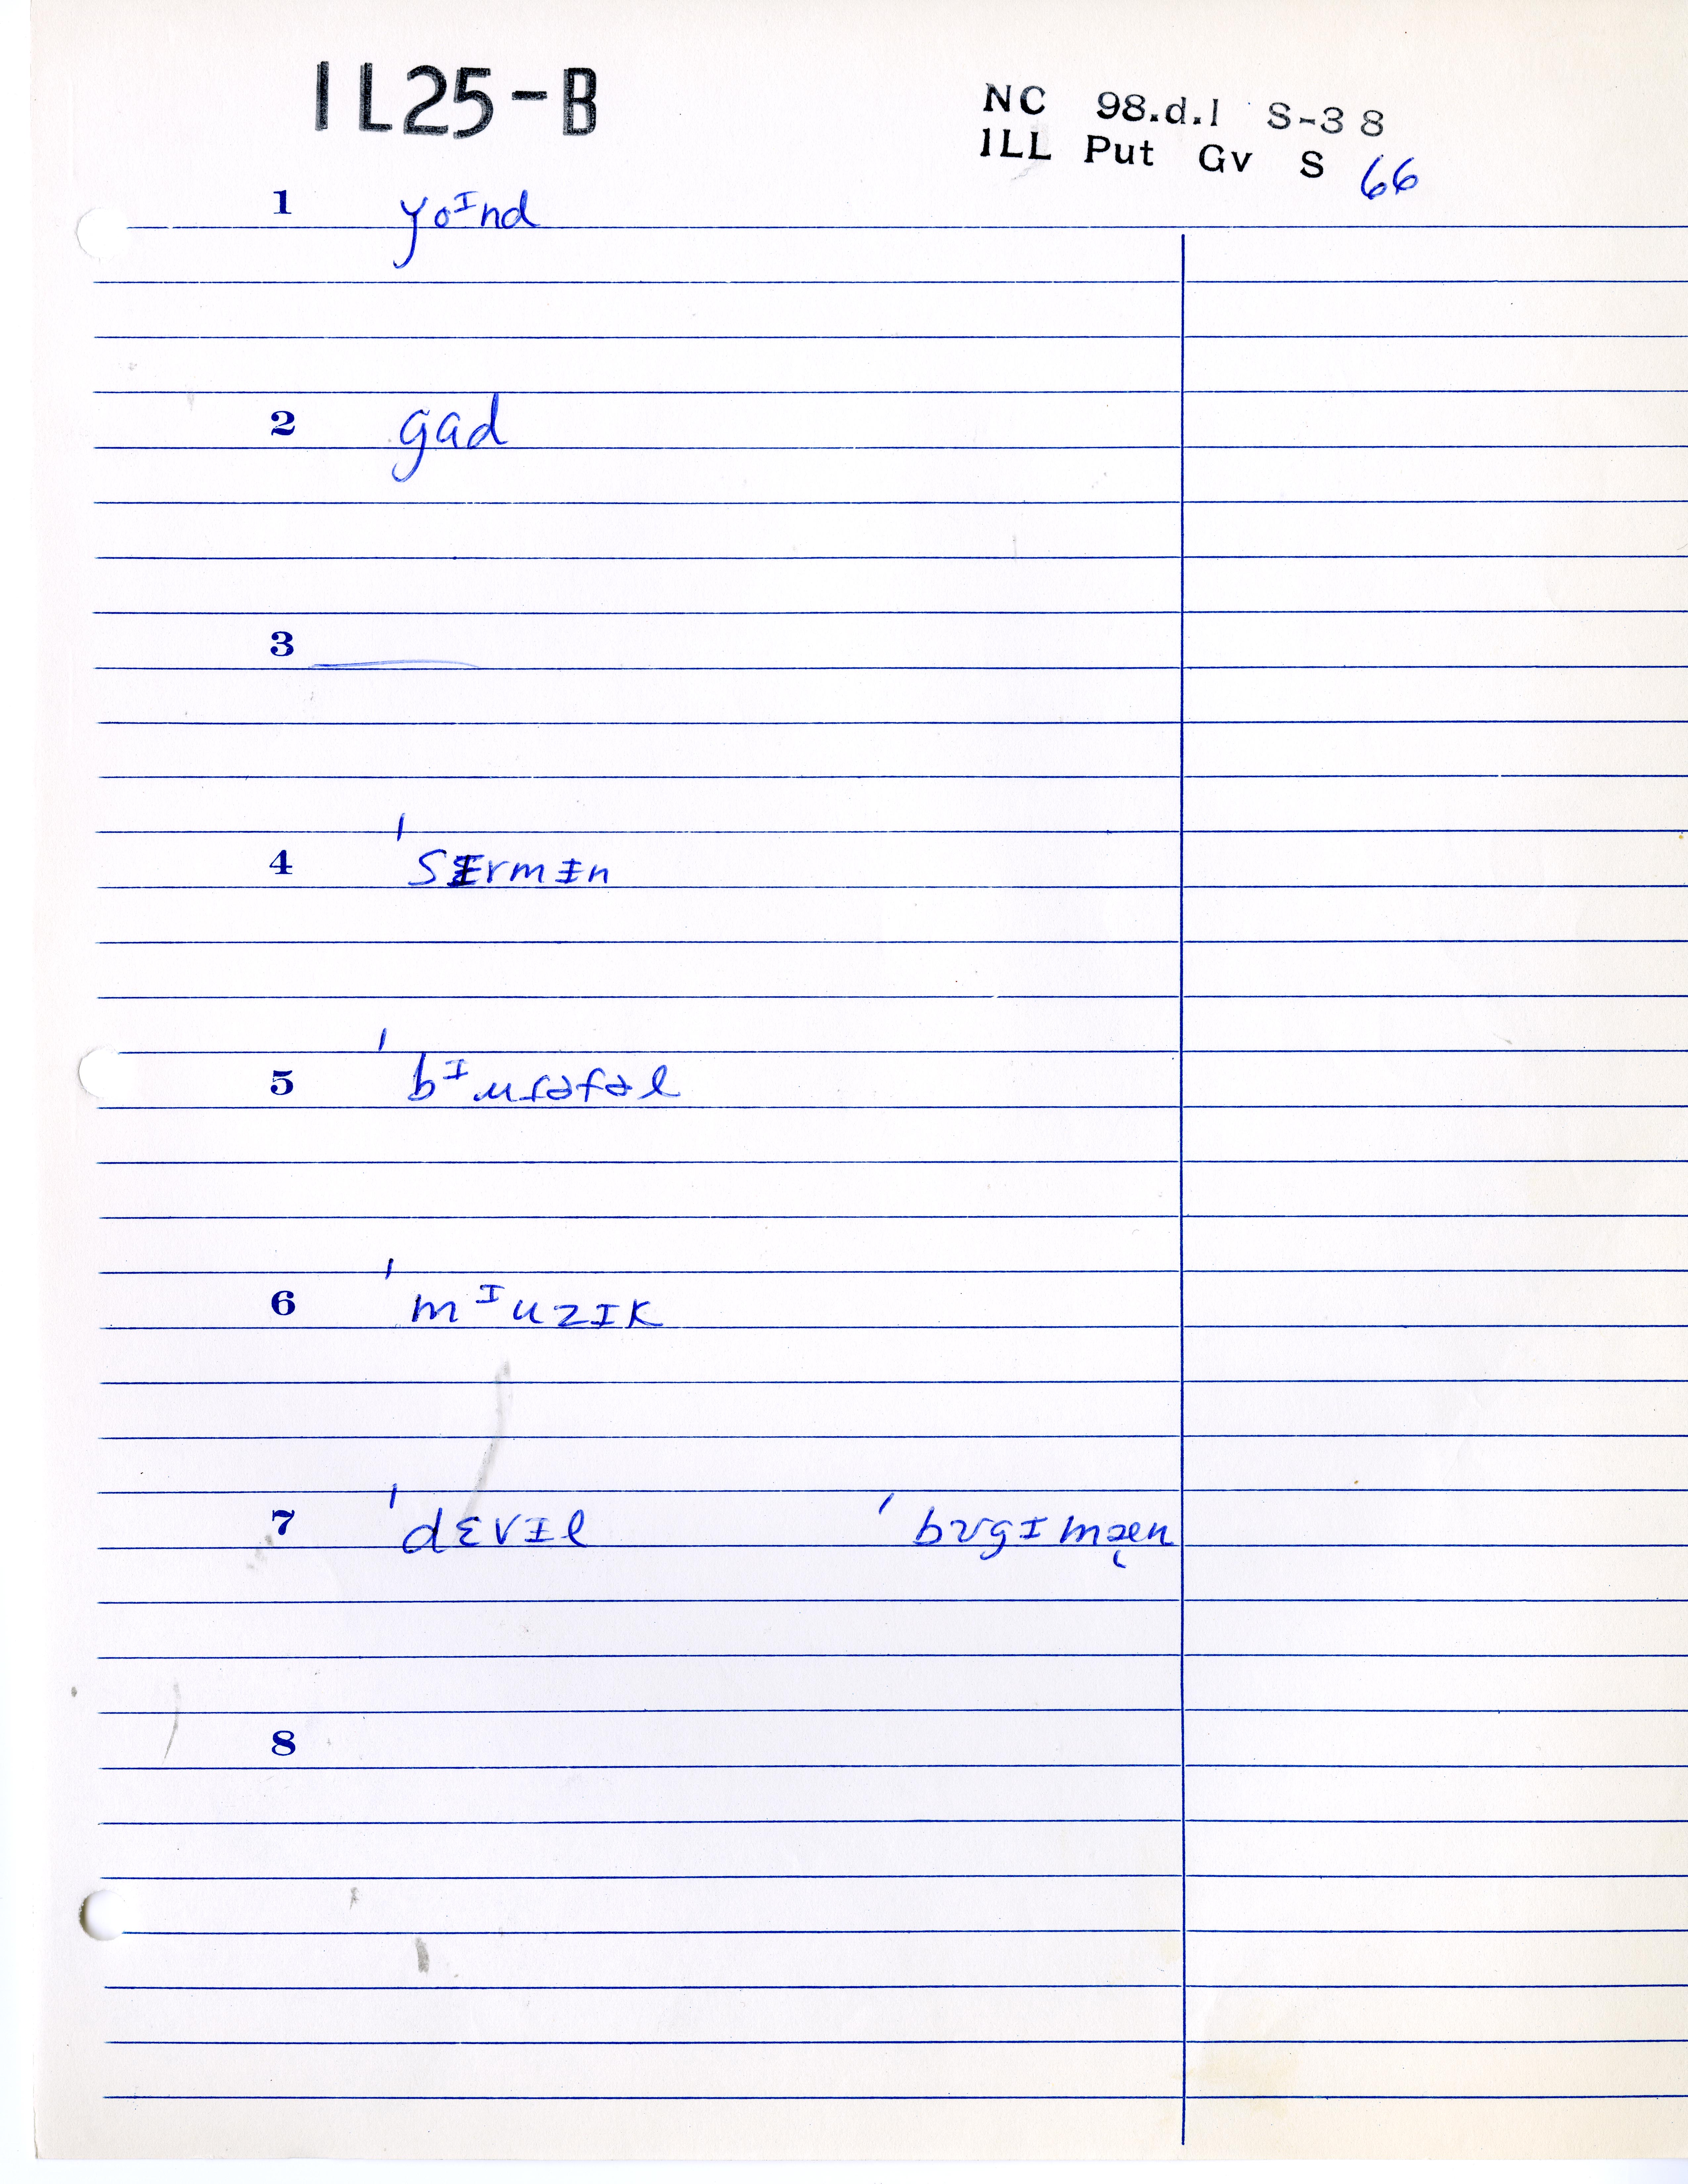 1L25-B
NC 98.d.1 S-38
ILL Put Gv S 66
1 yoᴵnd
2 gad
3 ——
4 ˈsɪrmɪn
5 ˈbᴵuɾəfəl
6 ˈmᴵuzɪk
7 ˈdɛvɪl ˈbʊgɪmæ̨n
8